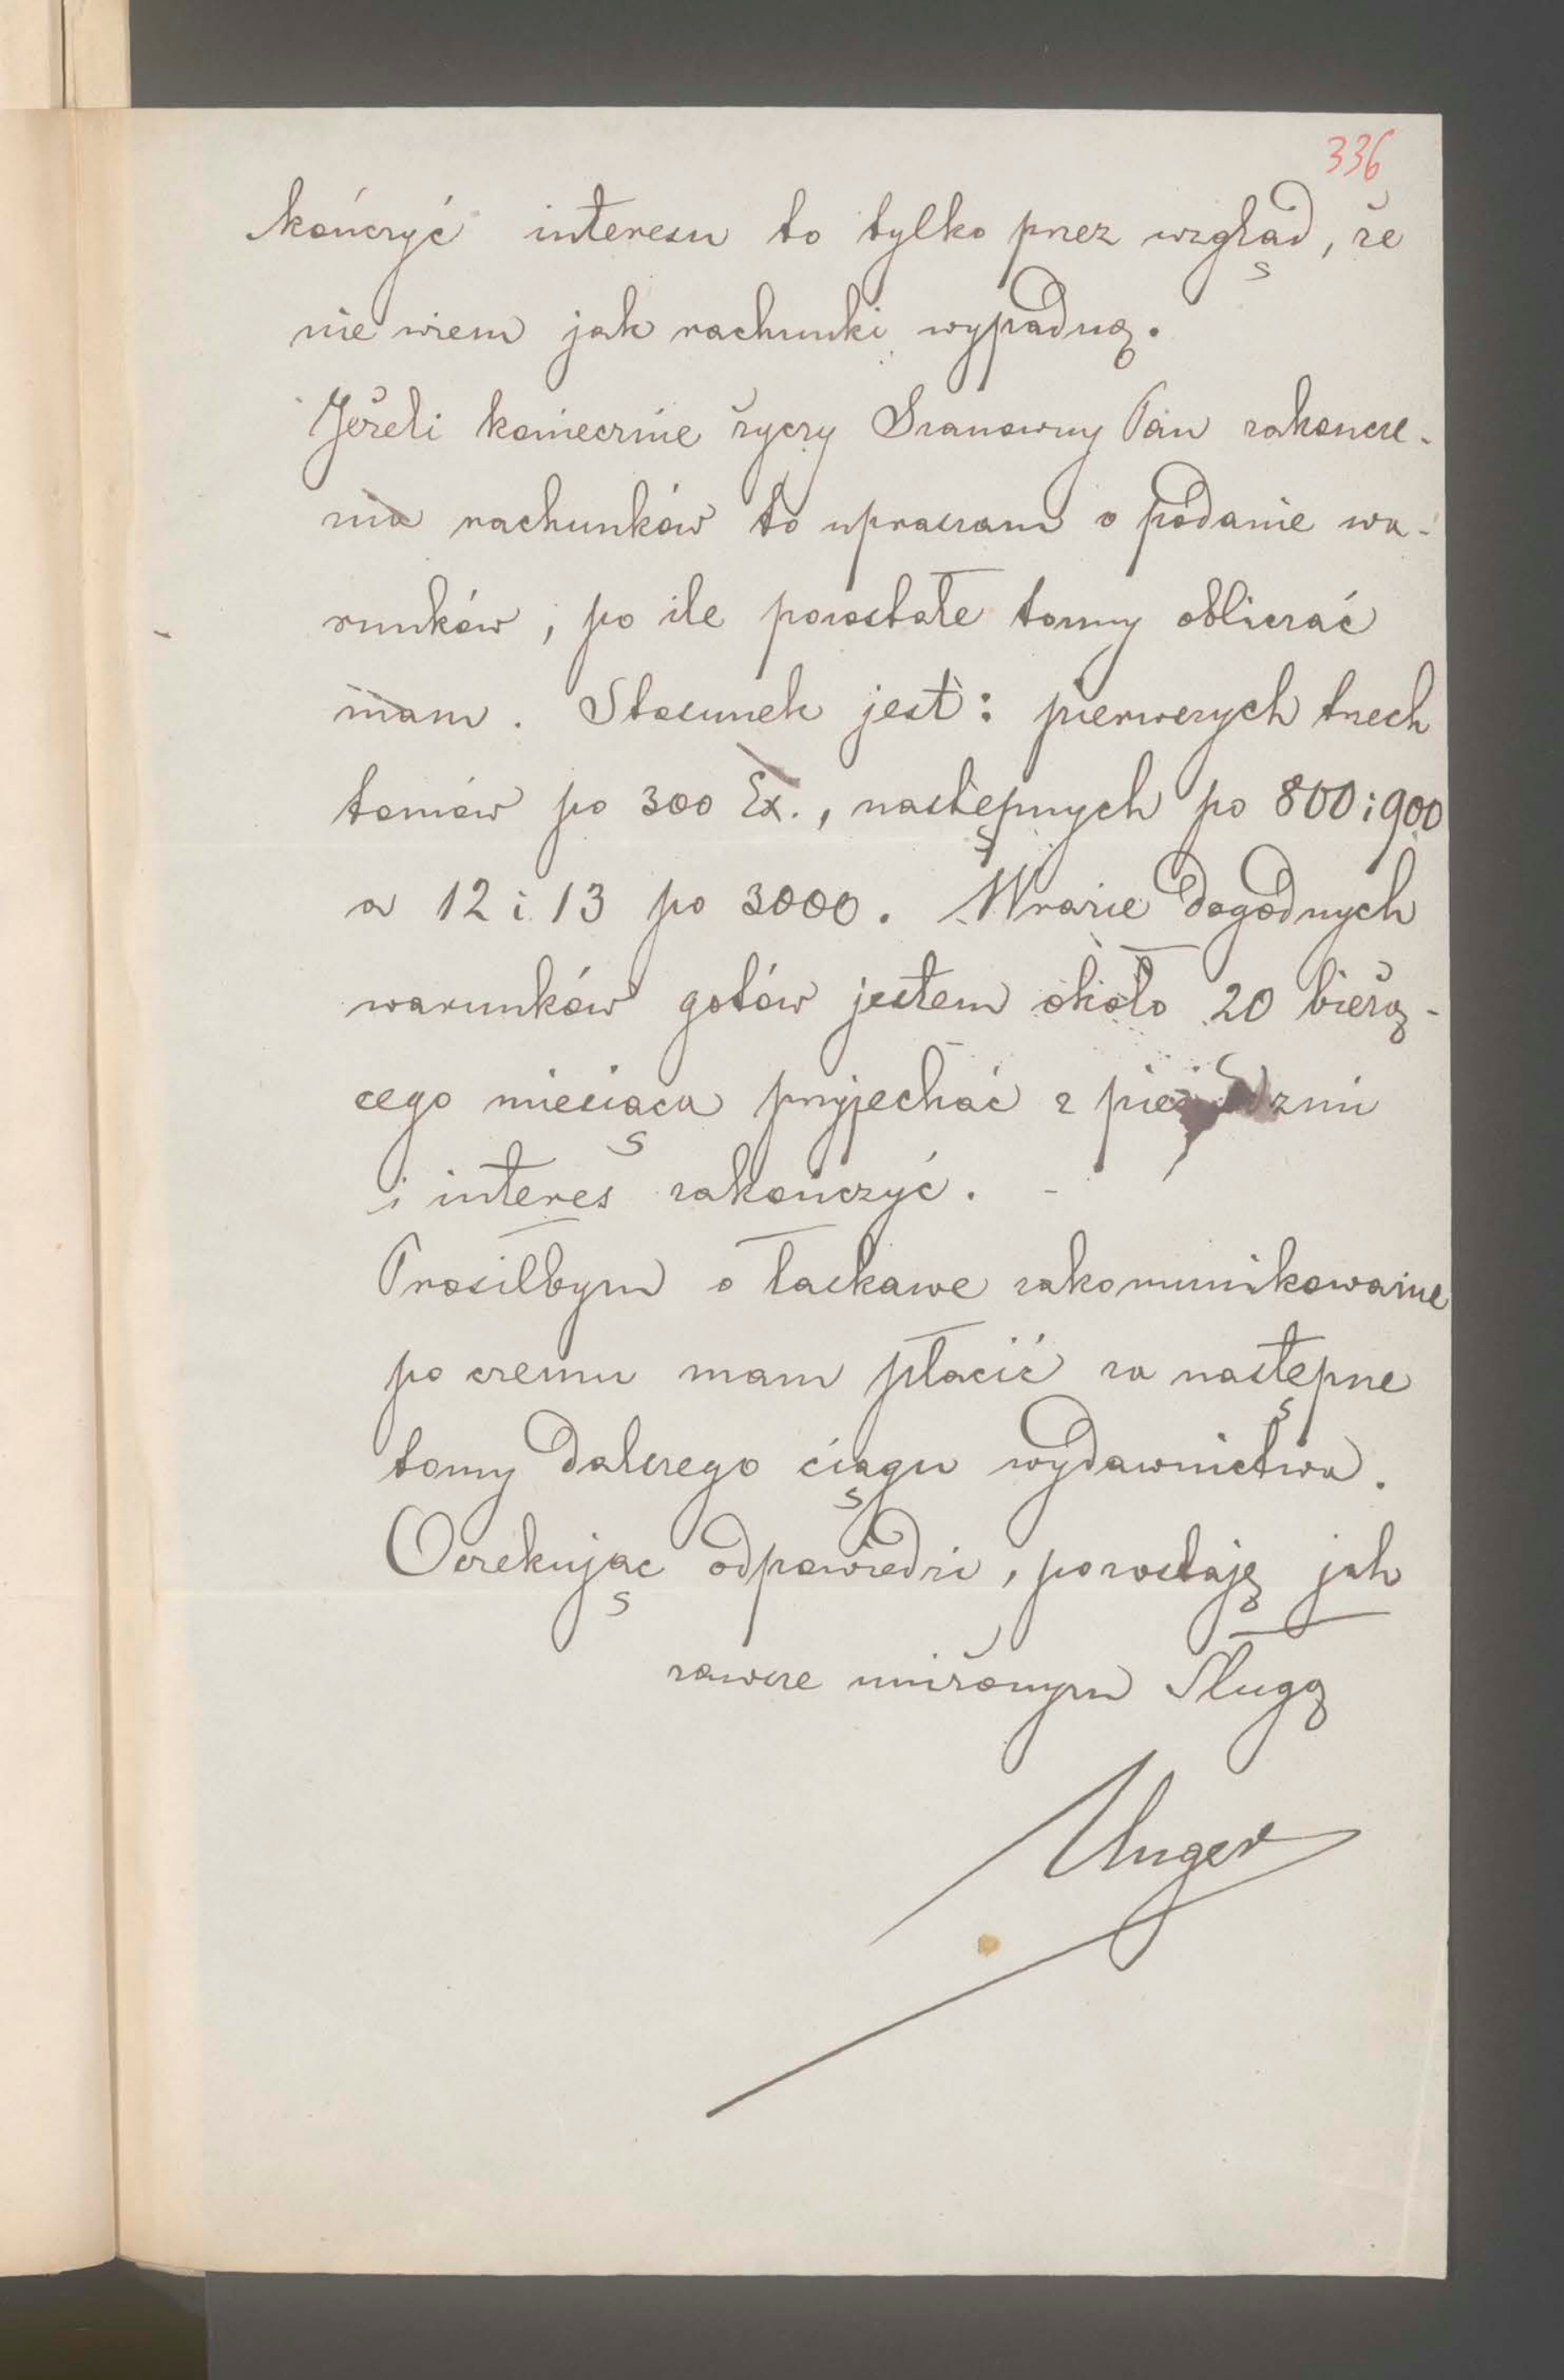 336
kończyć interesu to tylko przez wzgląd, że
nie wiem jak rachunki wypadną.
Jeżeli koniecznie życzy Szanowny Pan zakończe-
nia rachunków to upraszam o podanie wa-
runków, po ile pozostałe tomy obliczać
mam. Stosunek jest: pierwszych trzech
tomów po 300 Ex., następnych po 800 i 900
a 12 i 13 po 3000. W razie dogodnych
warunków gotów jestem około 20 bieżą-
cego miesiąca przyjechać z pieniędzmi
i interes zakończyć. -
Prosiłbym o łaskawe zakomunikowanie
po czemu mam płacić za następne
tomy dalszego ciągu wydawnictwa.
Oczekując odpowiedzi, pozostaję jak
zawsze uniżonym Sługą
Unger